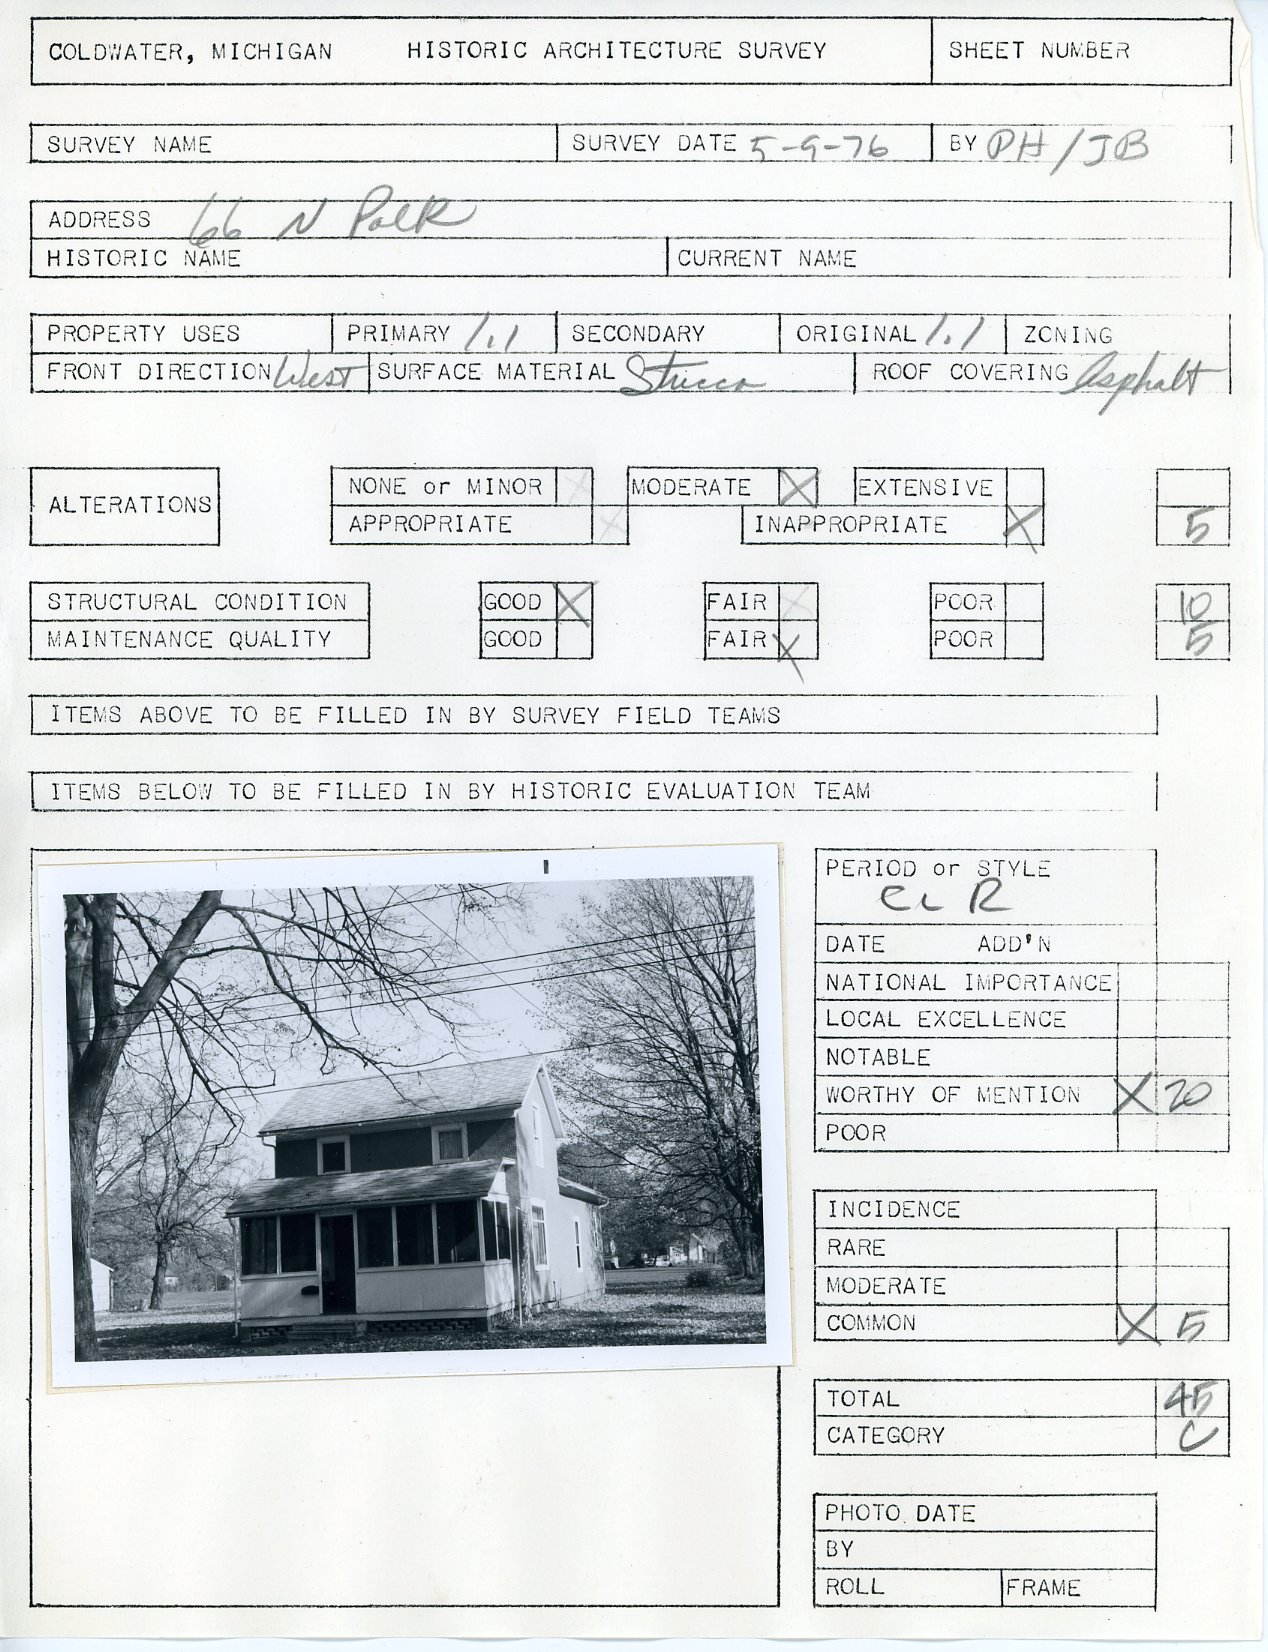 COLDWATER, MICHIGAN HISTORIC ARCHITECTURE SURVEY SHEET NUMBER
SURVEY NAME SURVEY DATE 5-9-76 BY PH/JB
ADDRESS 66 N Polk
HISTORIC NAME CURRENT NAME
PROPERTY USES PRIMARY 1.1 SECONDARY ORIGINAL 1.1 ZONING
FRONT DIRECTION West SURFACE MATERIAL Stucco ROOF COVERING Asphalt
ALTERATIONS
NONE or MINOR X MODERATE X EXTENSIVE
APPROPRIATE X INAPPROPRIATE X 5
STRUCTURAL CONDITION GOOD X FAIR X POOR 10
MAINTENANCE QUALITY GOOD FAIR X POOR 5
ITEMS ABOVE TO BE FILLED IN BY SURVEY FIELD TEAMS
ITEMS BELOW TO BE FILLED IN BY HISTORIC EVALUATION TEAM
PERIOD or STYLE
CL R
DATE ADD'N
NATIONAL IMPORTANCE
LOCAL EXCELLENCE
NOTABLE
WORTHY OF MENTION X 20
POOR
INCIDENCE
RARE
MODERATE
COMMON X 5
TOTAL 45
CATEGORY C
PHOTO DATE
BY
ROLL FRAME